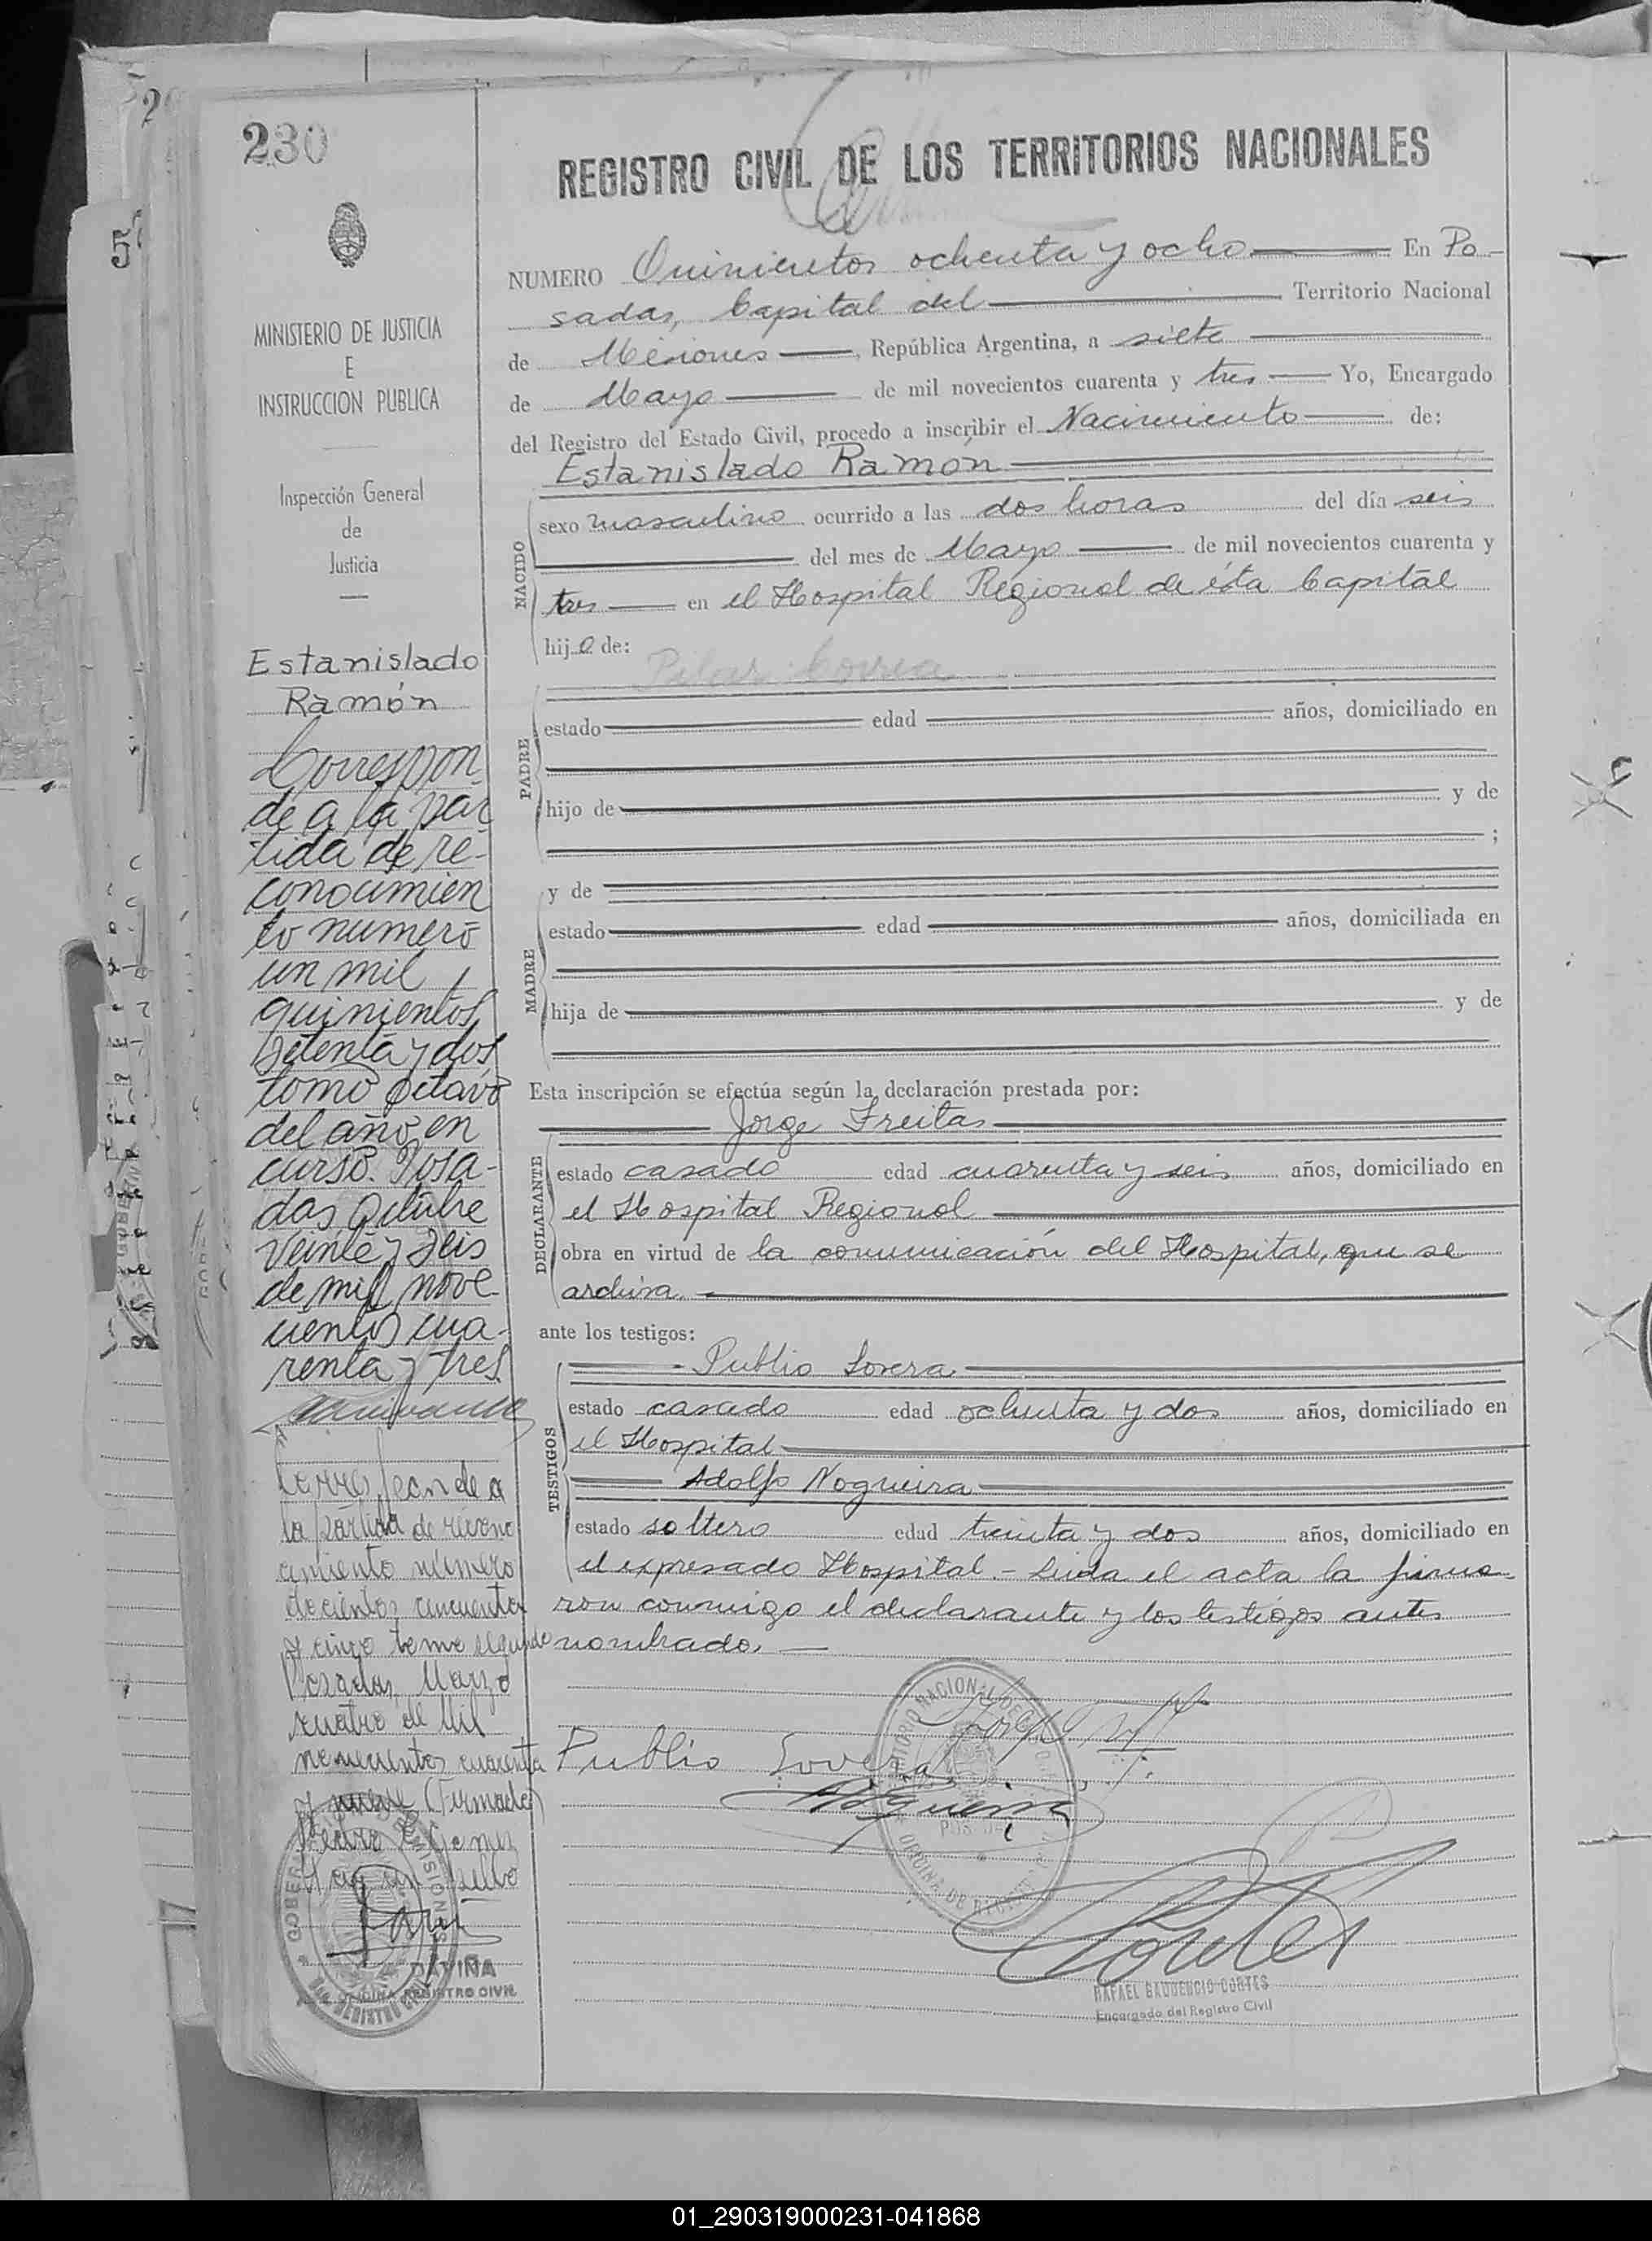 230
REGISTRO CIVIL DE LOS TERRITORIOS NACIONALES
MINISTERIO DE JUSTICIA
E
INSTRUCCION PUBLICA
Inspección General
de
Justicia
NUMERO Quinientos ochenta y ocho En Po-
sadas, Capital del Territorio Nacional
de Misiones, República Argentina, a siete
de Mayo de mil novecientos cuarenta y tres Yo, Encargado
del Registro del Estado Civil, procedo a inscribir el Nacimiento de:
Estanislado Ramón
NACIDO
sexo masculino ocurrido a las dos horas del día seis
del mes de Mayo de mil novecientos cuarenta y
tres en el Hospital Regional de ésta Capital
hijo de:
Pilar Correa
PADRE
estado edad años, domiciliado en
hijo de y de
;
MADRE
y de
estado edad años, domiciliada en
hija de y de
Esta inscripción se efectúa según la declaración prestada por:
Jorge Freitas
DECLARANTE
estado casado edad cuarenta y seis años, domiciliado en
el Hospital Regional
obra en virtud de la comunicación del Hospital, que se
archiva.
ante los testigos:
TESTIGOS
Publio Lovera
estado casado edad ochenta y dos años, domiciliado en
el Hospital
Adolfo Nogueira
estado soltero edad treinta y dos años, domiciliado en
el expresado Hospital.- Leida el acta la firma-
ron conmigo el declarante y los testigos antes
nombrado.
Publio Lovera
Nogueira
Cortes
RAFAEL GAUDENCIO CORTES
Encargado del Registro Civil
Estanislado
Ramón
Correspon-
de a la par
tida de re-
conocimien
to numero
un mil
quinientos
setenta y dos
tomo octavo
del año en
curso. Posa-
das Octubre
veinte y seis
de mil nove-
cientos cua-
renta y tres
Corresponde a
la partida de recono
cimiento número
docientos cincuenta
y cinco tomo segundo
Posadas, Marzo
cuatro de Mil
novecientos cuarenta
y nueve (Firmado)
Pedro Gomez
DAVIÑA
OFICINA REGISTRO CIVIL
01_290319000231-041868